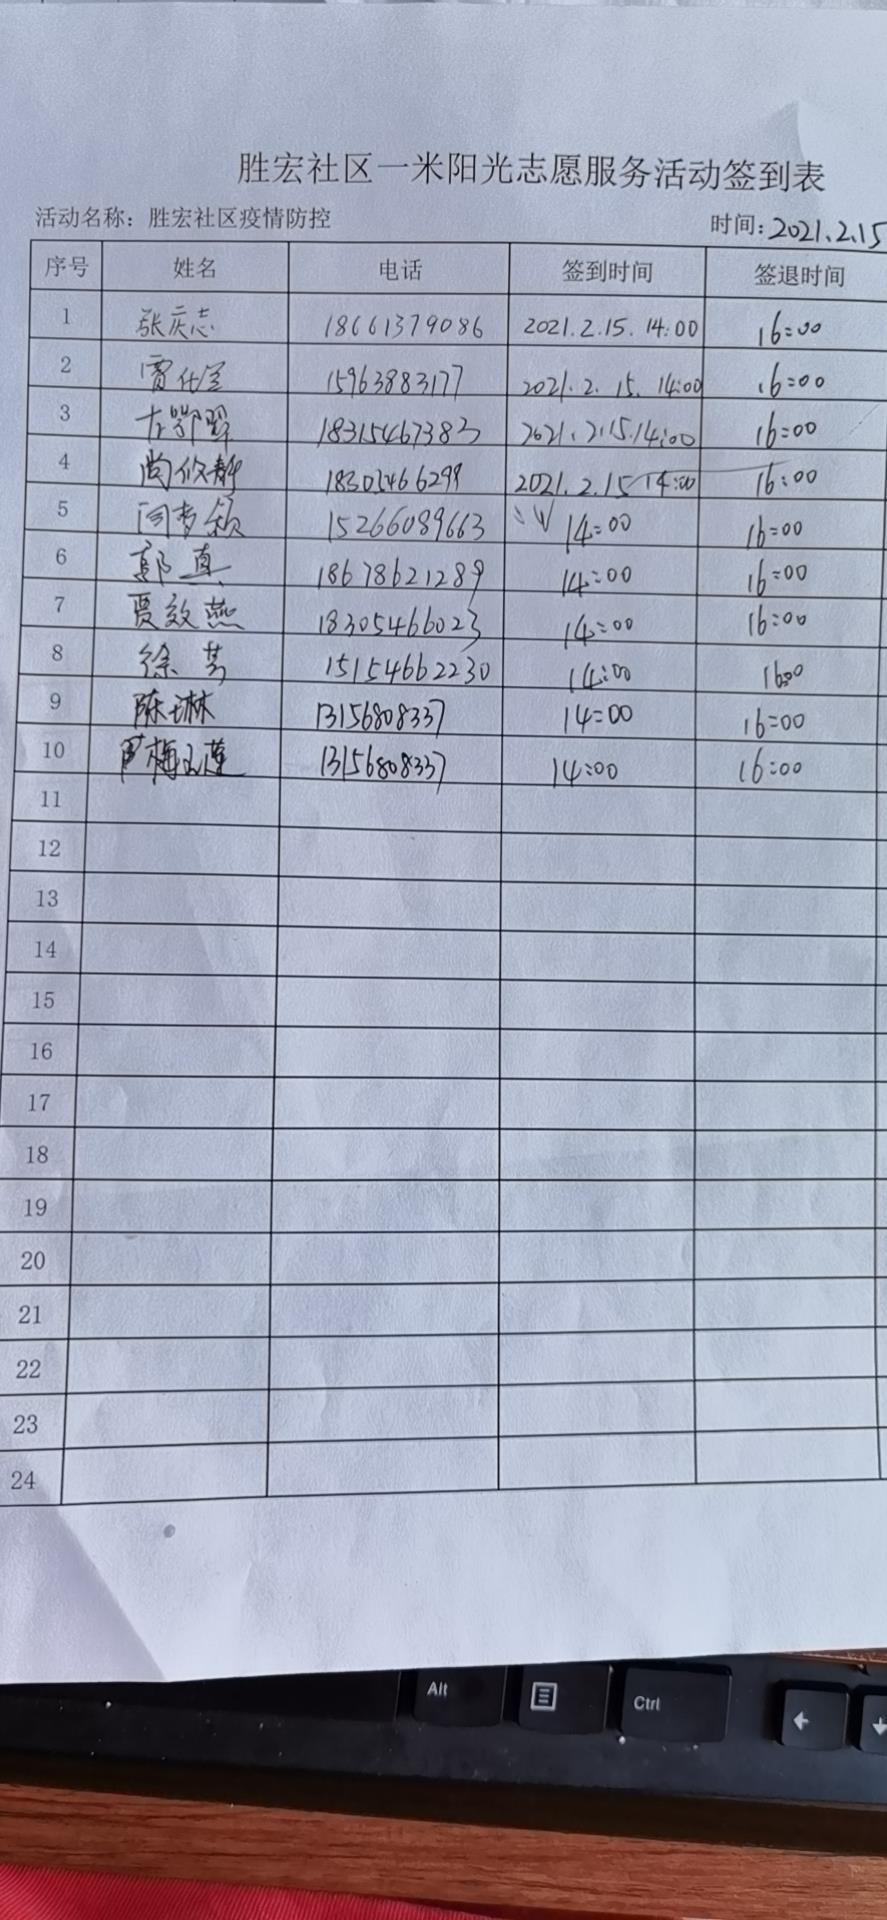 胜宏社区一米阳光志愿服务活动签到表
活动名称：胜宏社区疫情防控 时间：2021.2.15
序号 姓名 电话 签到时间 签退时间
1 张庆志 18661379086 2021.2.15.14:00 16:00
2 15963883177 2021.2.15.14:00 16:00
3 18315467383 2021.2.15.14:00 16:00
4 尚欣静 18305466299 2021.2.15 14:00 16:00
5 闫梦颖 15266089663 14:00 16:00
6 郭真 18678621289 14:00 16:00
7 贾效燕 18305466023 14:00 16:00
8 徐芳 15154662230 14:00 16:00
9 陈琳 13156808337 14:00 16:00
10 13156808337 14:00 16:00
11
12
13
14
15
16
17
18
19
20
21
22
23
24
Alt Ctrl